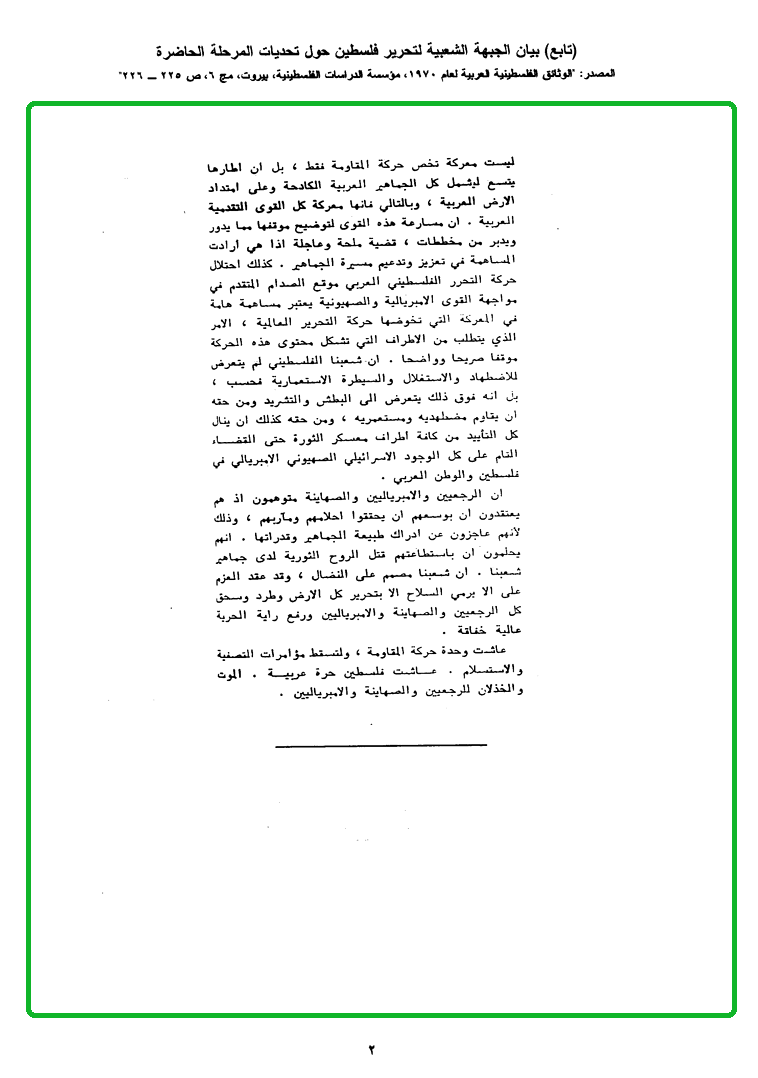 (تابع) بيان الجبهة الشعبية لتحرير فلسطين حول تحديات المرحلة الحاضرة
المصدر: "الوثائق الفلسطينية العربية لعام ١٩٧٠، مؤسسة الدراسات الفلسطينية، بيروت، مج ٦، ص ٢٢٥ – ٢٢٦"
ليست معركة تخص حركة المقاومة فقط ، بل ان اطارها
يتسع ليشمل كل الجماهير العربية الكادحة وعلى امتداد
الارض العربية ، وبالتالي فانها معركة كل القوى التقدمية
العربية . ان مسارعة هذه القوى لتوضيح موقفها مما يدور
ويدبر من مخططات ، قضية ملحة وعاجلة اذا هي ارادت
المساهمة في تعزيز وتدعيم مسيرة الجماهير . كذلك احتلال
حركة التحرر الفلسطيني العربي موقع الصدام المتقدم في
مواجهة القوى الامبريالية والصهيونية يعتبر مساهمة هامة
في المعركة التي تخوضها حركة التحرير العالمية ، الامر
الذي يتطلب من الاطراف التي تشكل محتوى هذه الحركة
موقفا صريحا وواضحا . ان شعبنا الفلسطيني لم يتعرض
للاضطهاد والاستغلال والسيطرة الاستعمارية فحسب ،
بل انه فوق ذلك يتعرض الى البطش والتشريد ومن حقه
ان يقاوم مضطهديه ومستعمريه ، ومن حقه كذلك ان ينال
كل التأييد من كافة اطراف معسكر الثورة حتى القضاء
التام على كل الوجود الاسرائيلي الصهيوني الامبريالي في
فلسطين والوطن العربي .
ان الرجعيين والامبرياليين والصهاينة متوهمون اذ هم
يعتقدون ان بوسعهم ان يحققوا احلامهم ومآربهم ، وذلك
لأنهم عاجزون عن ادراك طبيعة الجماهير وقدراتها . انهم
يحلمون ان باستطاعتهم قتل الروح الثورية لدى جماهير
شعبنا . ان شعبنا مصمم على النضال ، وقد عقد العزم
على الا يرمي السلاح الا بتحرير كل الارض وطرد وسحق
كل الرجعيين والصهاينة والامبرياليين ورفع راية الحرية
عالية خفاقة .
عاشت وحدة حركة المقاومة ، ولتسقط مؤامرات التصفية
والاستسلام . عاشت فلسطين حرة عربية . الموت
والخذلان للرجعيين والصهاينة والامبرياليين .
٢